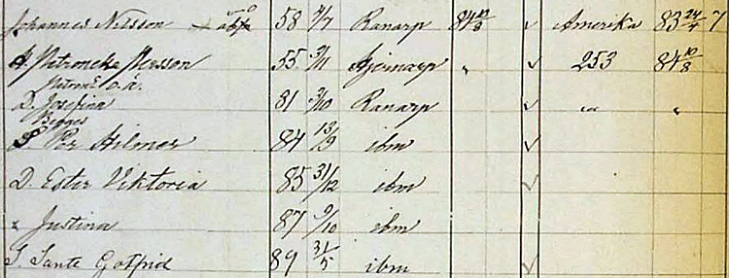 Johannes Nilsson 58 4/7 Ranarp 84 10/8 Amerika 83 24/4 7
Petronela Persson 55 Hjernarp „ 253 84 10/8
o. ä.
D. Josefina 81 Ranarp „ „
Bengts
S Per Hilmer 84 13/9 ibm
D. Ester Viktoria 85 31/12 ibm
„ Justina 87 9/10 ibm
S. Sante Gotfrid 89 31/5 ibm